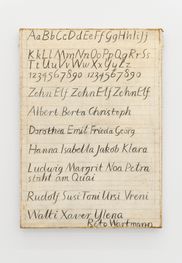 AaBbCcDdEeFfGgHhIiJj
KkLlMmNnOoPpQqRrSs
TtUuVvWwXxYyZz
1234567890 1234567890
Zehn Elf Zehn Elf Zehn Elf
Albert Berta Christoph
Dorothea Emil Frieda Georg
Hanna Isabella Jakob Klara
Ludwig Margrit Noa Petra
staht am Quai
Rudolf Susi Toni Ursi Vreni
Walti Xaver Ylena
Reto Wartmann